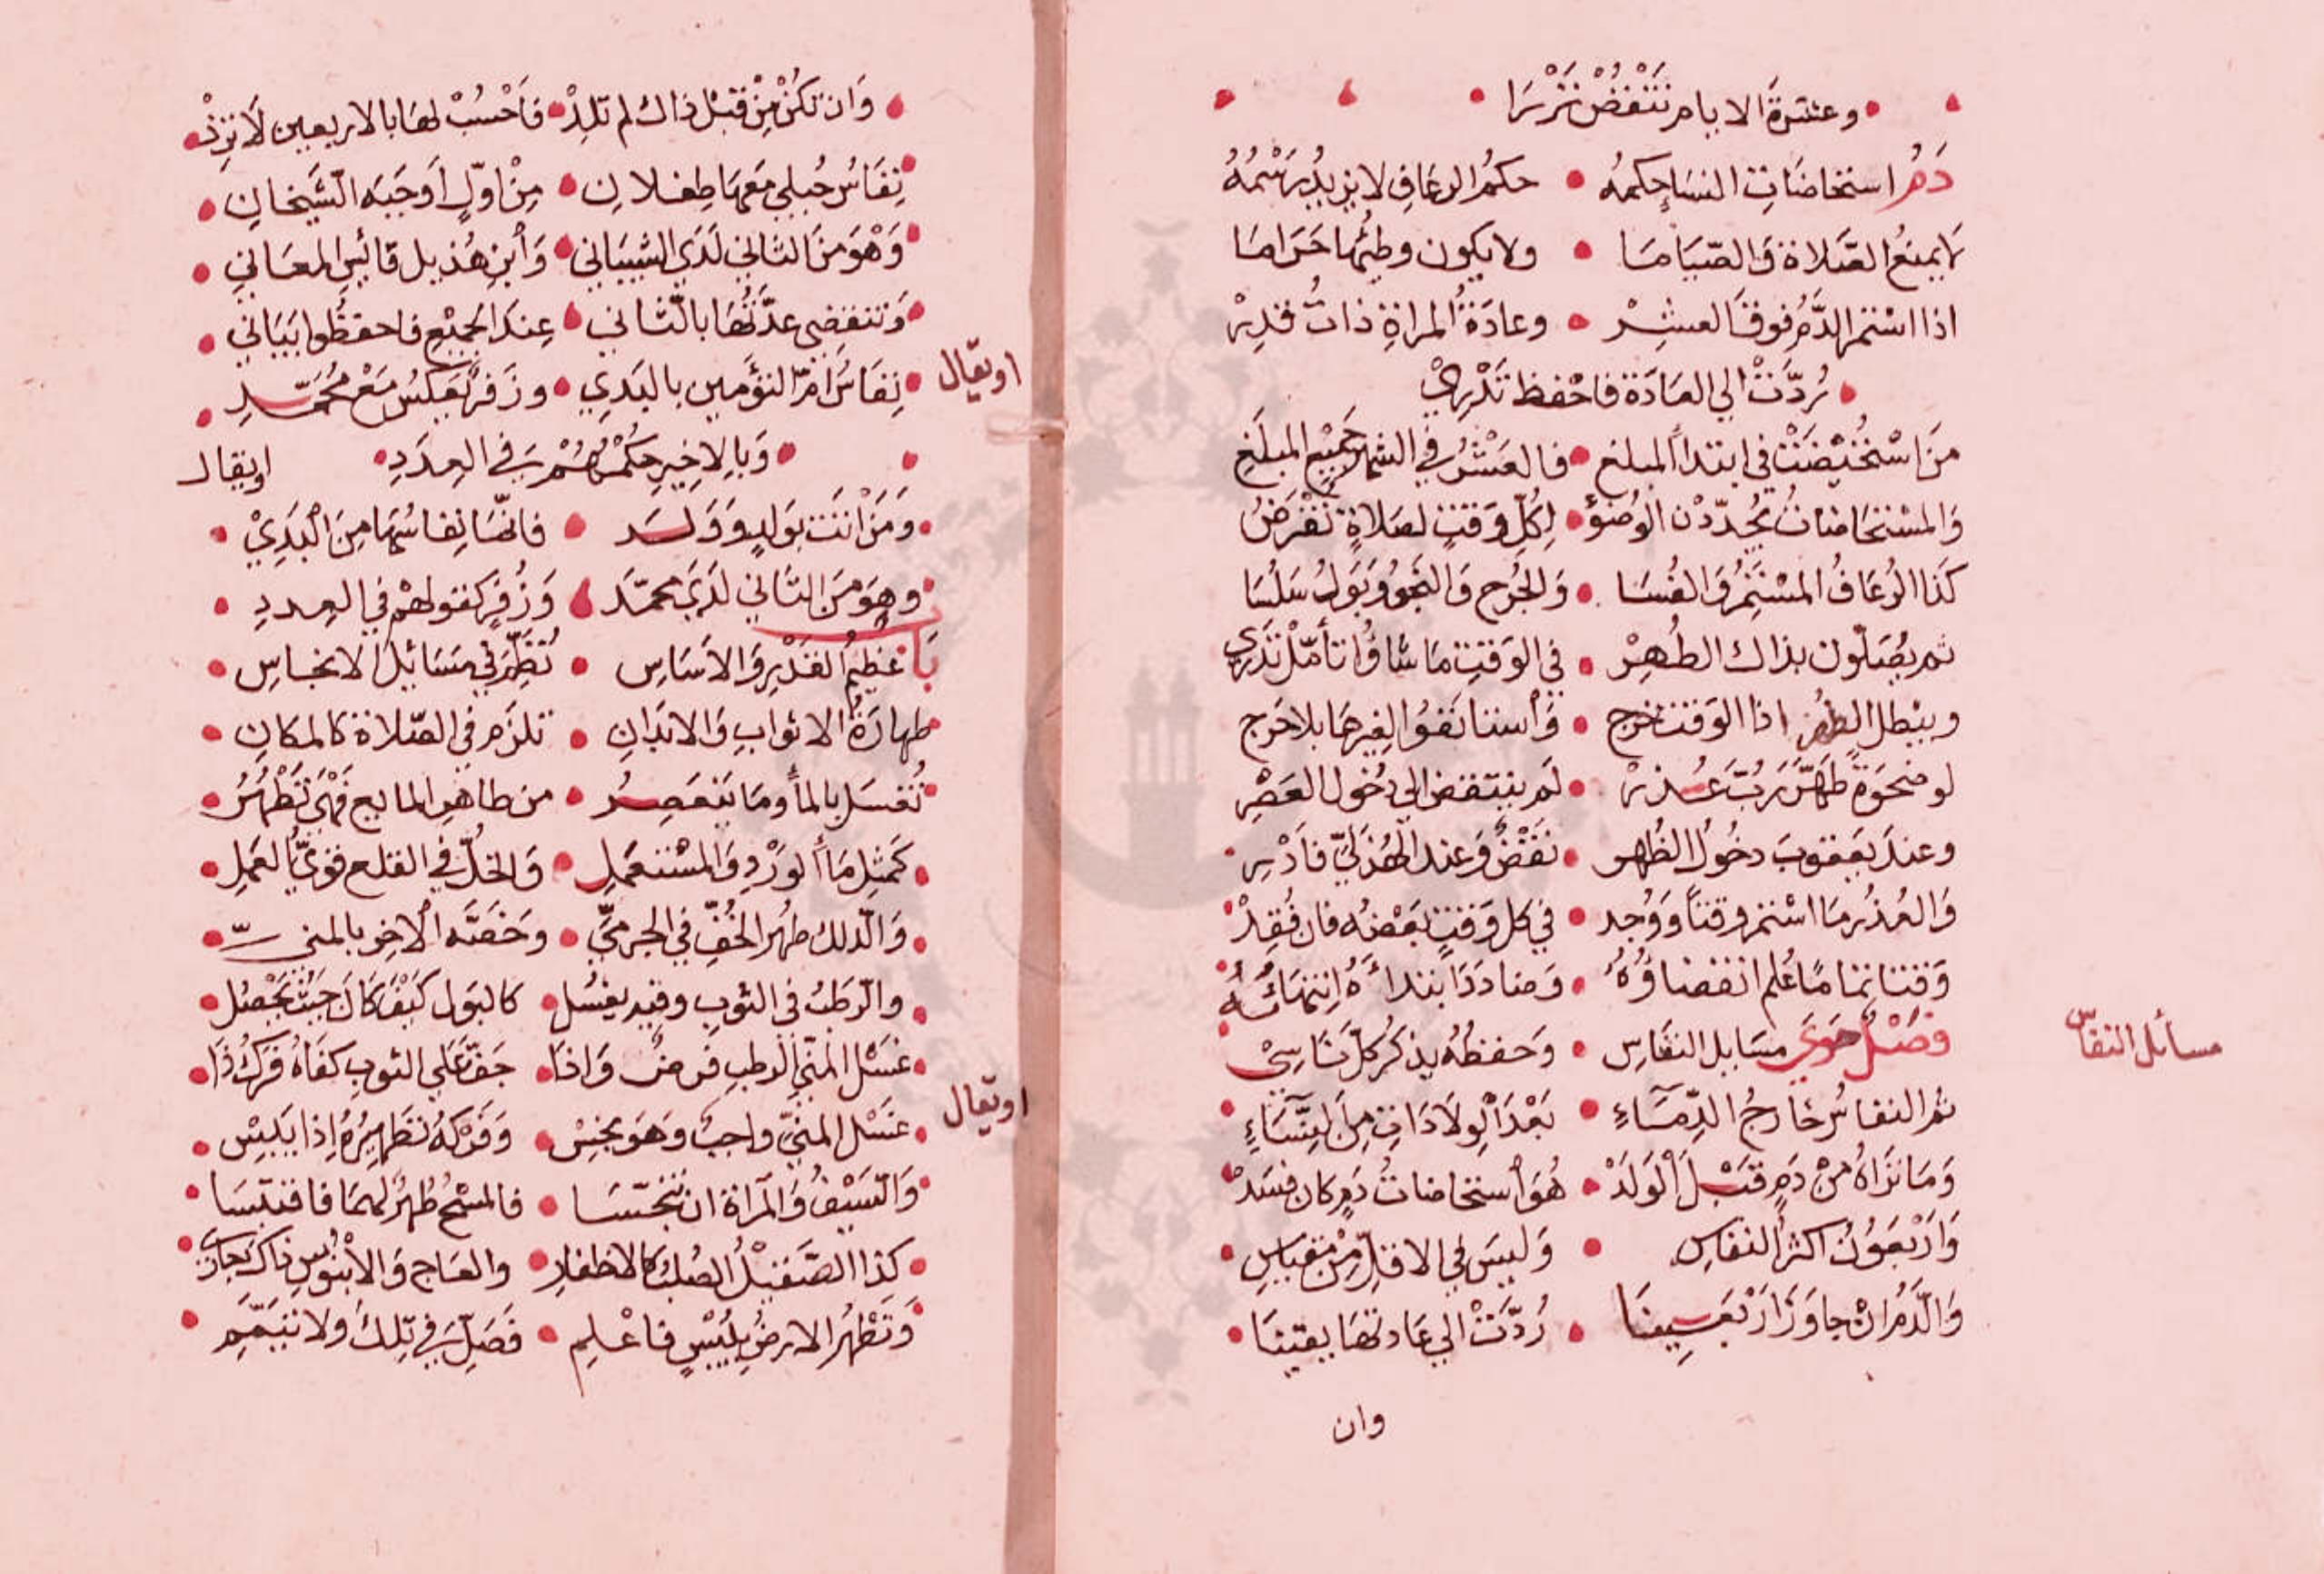 وعشرة الايام تنقض نزرا
دم استحاضات النسا حكمه • حكم الرعاف لا يزيد رسمه
لا يمنع الصلاة والصياما • ولا يكون وطئها حراما
اذا استمر الدم فوق العشر • وعادة المراة ذات قدر
ردت الي العادة فاحفظ تدري
من استحيضت في ابتدا المبلغ • فالعشر في الشهر جميع المبلغ
والمستحاضات يجددن الوضوء • لكل وقت لصلاة تفرض
كذا الرعاف المستمر والفسا • والجرح والنجو وبول سلسا
ثم يصلون بذاك الطهر • في الوقت ما شاؤا تأمل تدري
ويبطل الطهر اذا الوقت خرج • واستانفوا لغيرها بلا حرج
لو ضحوة طهر رب عذر • لم ينتقض الي دخول العصر
وعند يعقوب دخول الظهر • نقض وعند الهذلي فادر
والعذر ما استمر وقتا ووجد • في كل وقت بعضه فان فقد
وقتا تماما علم انقضاؤه • وضاددا بتداءه انتهائه
فصل حوي مسايل النفاس • وحفظه يذكر كل ناسي
مسائل النفاس
ثم النفاس خارج الدماء • بعد الولادات من النساء
وما تراه من دم قبل الولد • هو استحاضات دم كان فسد
واربعون اكثر النفاس • وليس في الاقل من مقياس
والدم ان جاوز اربعينا • ردت الي عادتها يقينا
وان
وان تكن من قبل ذاك لم تلد • فاحسب لها بالاربعين لا تزد
نفاس حبلي معها طفلان • من اول اوجبه الشيخان
وهو من الثاني لدي الشيباني • وابن هذيل قائس المعاني
وتنقضي عدتها بالثاني • عند الجميع فاحفظوا بياني
اويقال
نفاس ام التؤمين بالبدي • وزفر بعكس مع محمد
وبالاخير حكمهم في العدد
اويقال
ومن انت بولد وولد • فانما نفاسها من البدي
وهو من الثاني لدي محمد • وزفر كقولهم في العدد
باب عظيم القدر والاساس • تظهر في مسائيل الانجاس
طهارة الاثواب والابدان • تلزم في الصلاة كالمكان
تغسل بالماء وما ينعصر • من طاهر المايع فهي تطهر
كمثل ماء الورد والمستعمل • والخل في القلع قوي العمل
والدلك طهر الخف في الجرمي • وخصه الاخر بالمني
والرطب في الثوب وقيد يغسل • كالبول كيف كان حيث يحصل
غسل المني الرطب فرض واذا • جف علي الثوب كفاه فرك ذا
اويقال
غسل المني واجب وهو نجس • وفركه تطهيره اذا يبس
والسيف والمراة ان تنجسا • فالمسح طهر لهما فاقتبسا
كذا الصقيل الصلب كالاظفار • والعاج والابنوس ذاك جار
وتطهر الارض بيبس فاعلم • فصل في تلك ولا تيمم